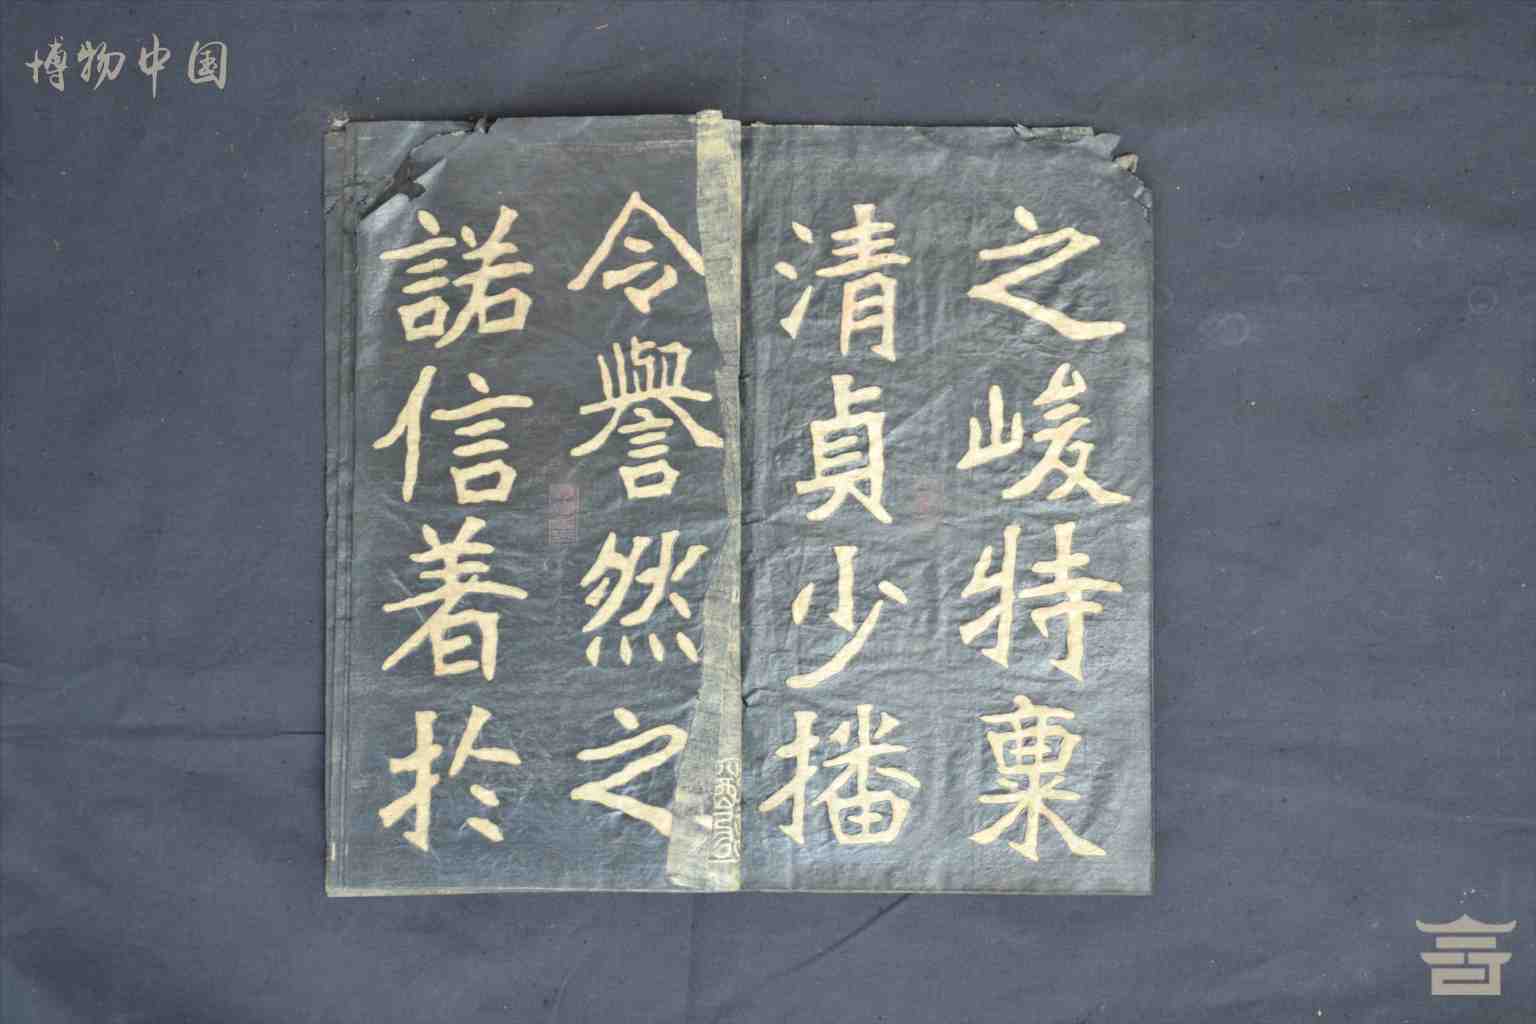 博物中国
之峻特稟
清貞少播
令譽然之
諾信著於